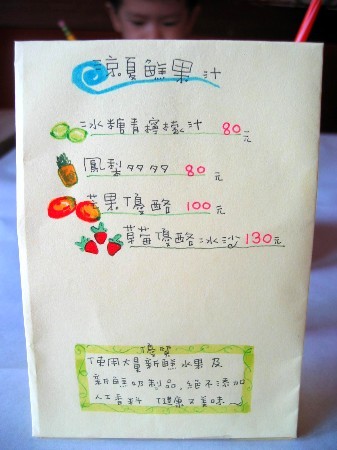 涼夏鮮果汁
冰糖青檸檬汁 80元
鳳梨多多 80元
芒果優酪 100元
草莓優酪冰沙 130元
優質
使用大量新鮮水果及
新鮮奶製品,絕不添加
人工香料 健康又美味~